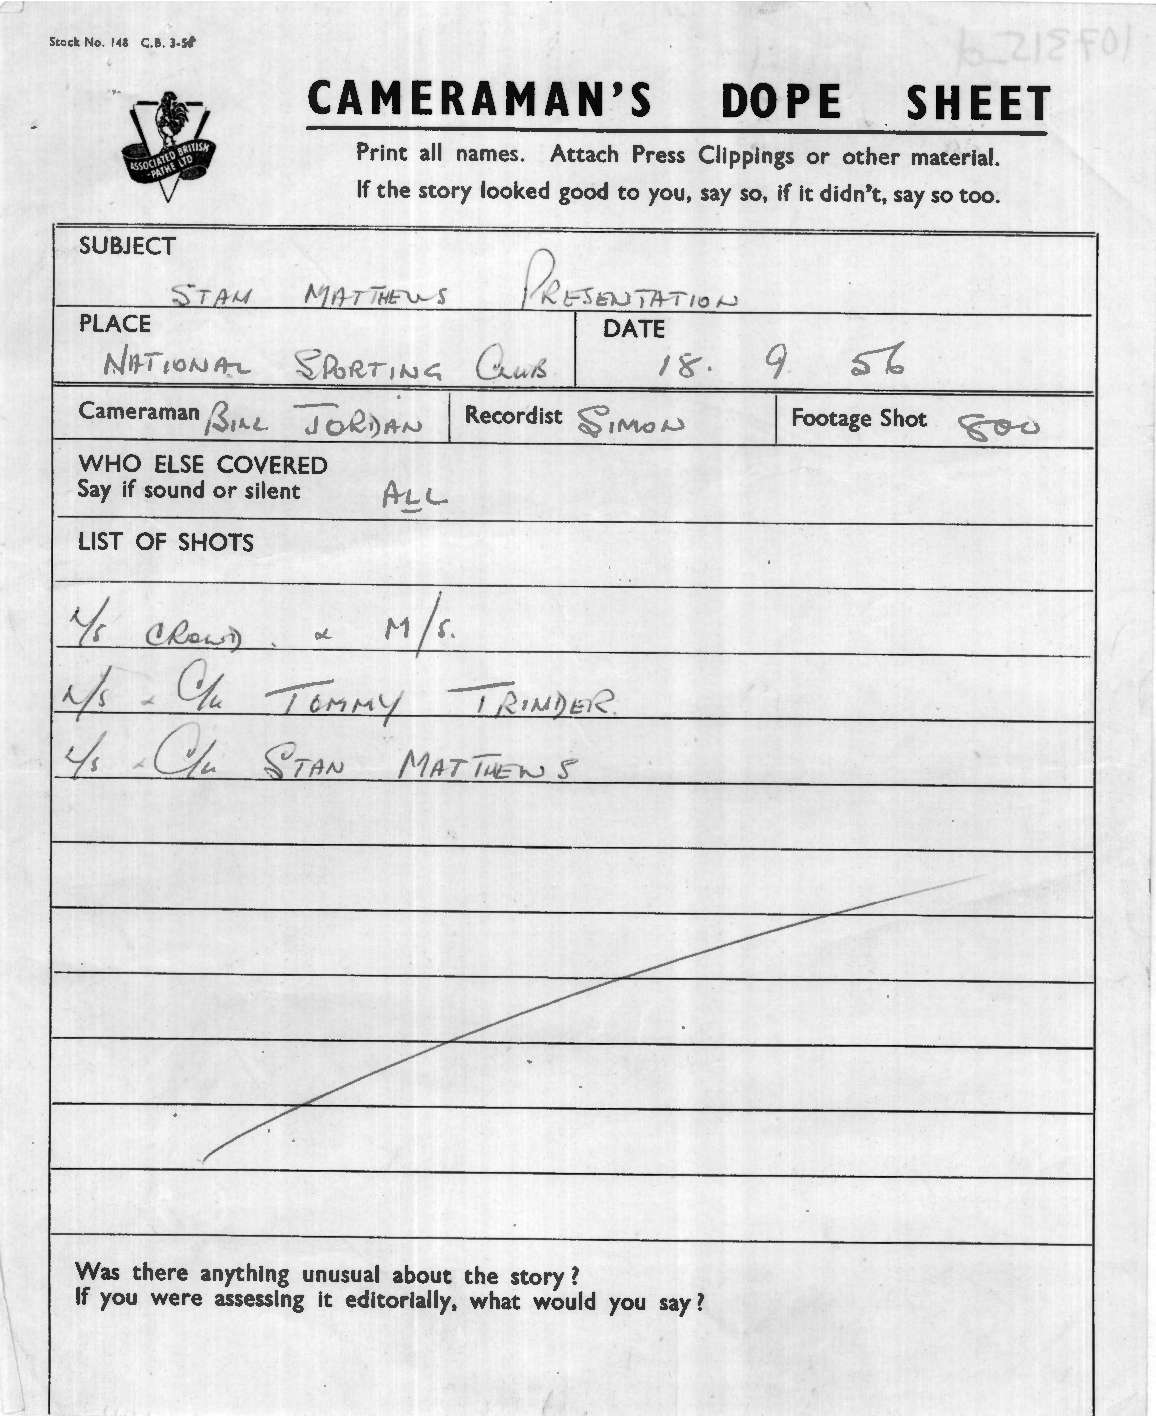 Stock No. 148 C.B. 3-5
ASSOCIATED BRITISH
-PATHE LTD
CAMERAMAN'S DOPE SHEET
Print all names. Attach Press Clippings or other material.
If the story looked good to you, say so, if it didn't, say so too.
SUBJECT
STAN MATTHEWS PRESENTATION
PLACE
DATE
NATIONAL SPORTING CLUB
18. 9 56
Cameraman BILL JORDAN Recordist SIMON Footage Shot 800
WHO ELSE COVERED
Say if sound or silent ALL
LIST OF SHOTS
L/S CROWD. & M/S.
C/U TOMMY TRINDER.
C/U STAN MATTHEWS
Was there anything unusual about the story?
If you were assessing it editorially, what would you say?